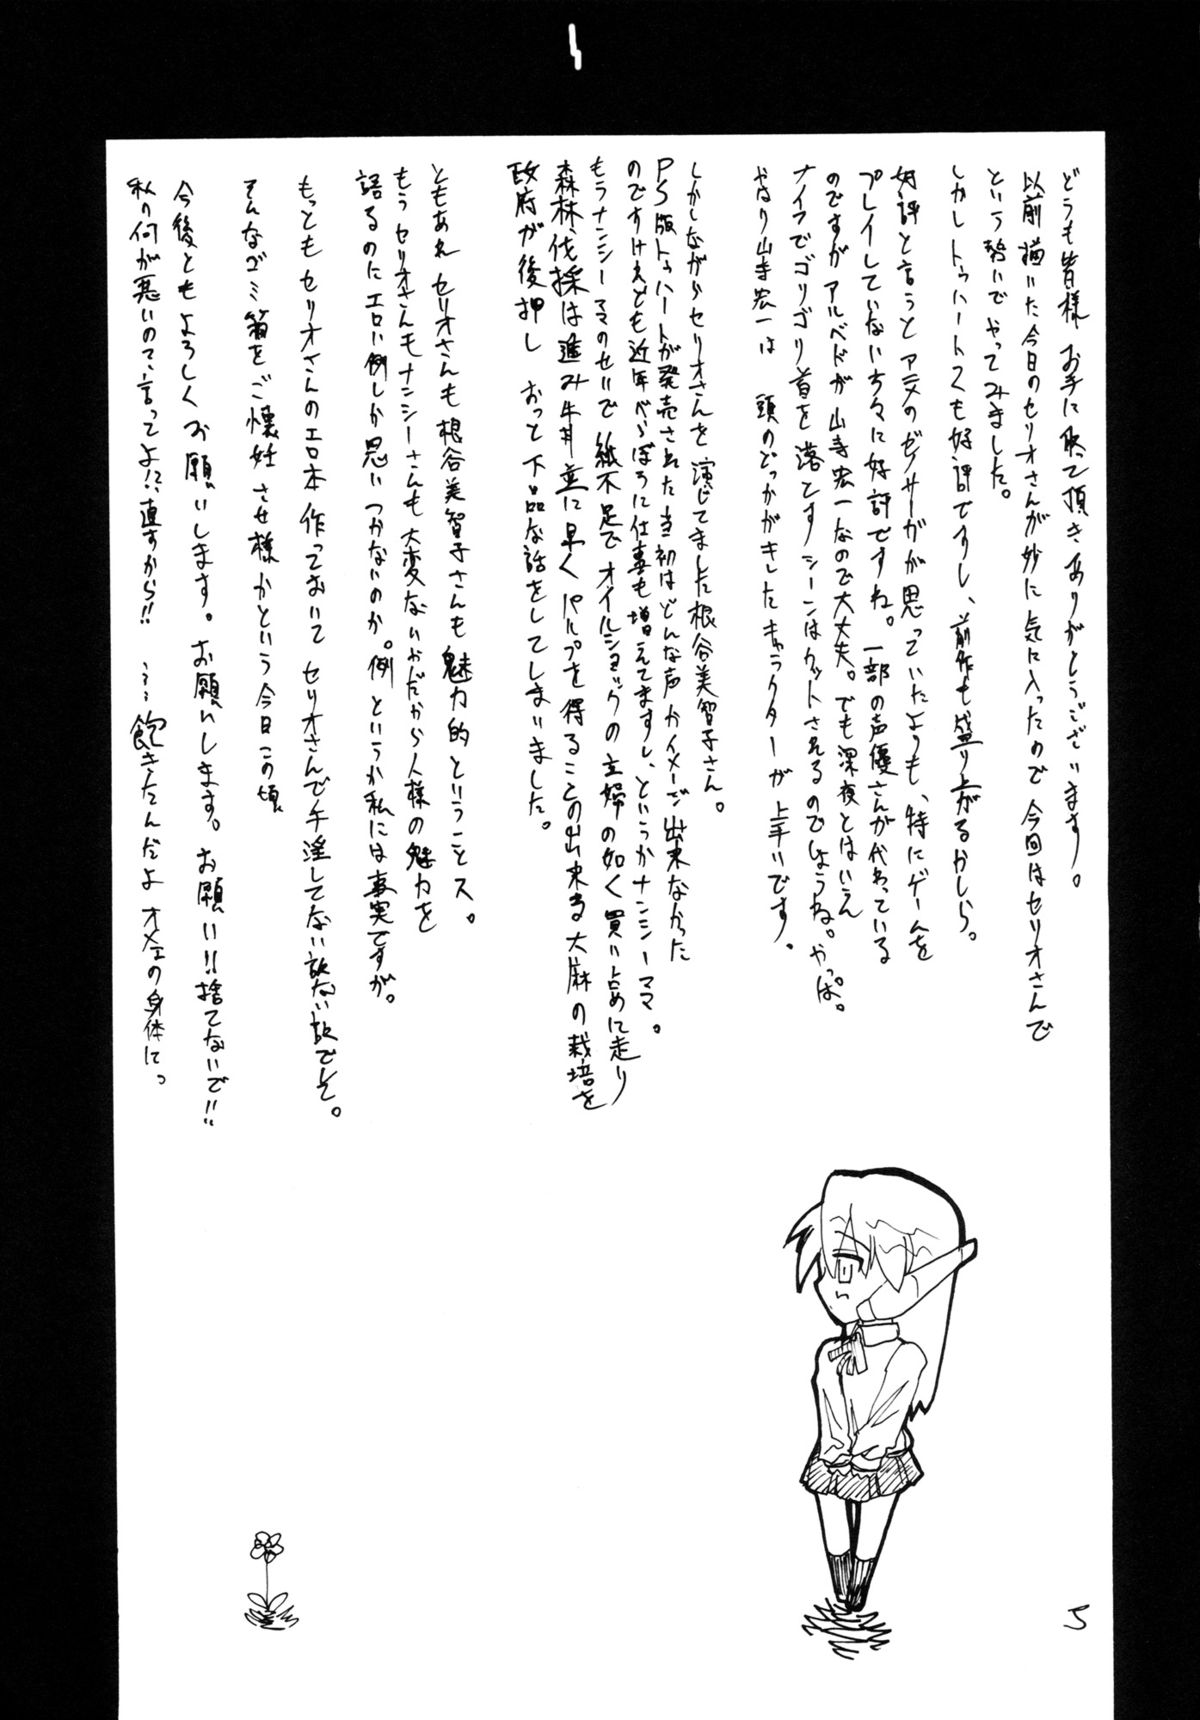 どうも皆様 お手に取って頂きありがとうございます。
以前描いた今日のセリオさんが妙に気に入ったので 今回はセリオさんで
という勢いでやってみました。
しかしトゥハート2も好評ですし、前作も盛り上がるかしら。
好評と言うと アニメのゼノサーガが思っていたよりも、特にゲームを
プレイしていない方々に好評ですね。一部の声優さんが代わっている
のですが アルベドが山寺宏一なので大丈夫。でも深夜とはいえ
ナイフでゴリゴリ首を落とすシーンはカットされるのでしょうね。やっぱ。
やはり山寺宏一は 頭のどっかがキレたキャラクターが上手いです。
しかしながらセリオさんを演じてました根谷美智子さん。
PS版トゥハートが発売された当初はどんな声かイメージ出来なかった
のですけれども近年べらぼうに仕事も増えてますし、というかナンシーママ。
もうナンシーママのせいで紙不足で オイルショックの主婦の如く買い占めに走り
森林伐採は進み牛丼並に早くパルプを得ることの出来る大麻の栽培を
政府が後押し おっと下品な話をしてしまいました。
ともあれ セリオさんも根谷美智子さんも魅力的ということス。
もうセリオさんもナンシーさんも大変ないかだから人様の魅力を
語るのにエロい例しか思いつかないのか。例というか私には事実ですが。
もっともセリオさんのエロ本作っておいて セリオさんで手淫してない訳ない訳でして。
そんなゴミ箱をご懐妊させ様かという今日この頃
今後ともよろしくお願いします。お願いします。お願い!!捨てないで!!
私の何が悪いので、言ってよ!?直すから!! ……飽きたんだよオメェの身体にっ
5